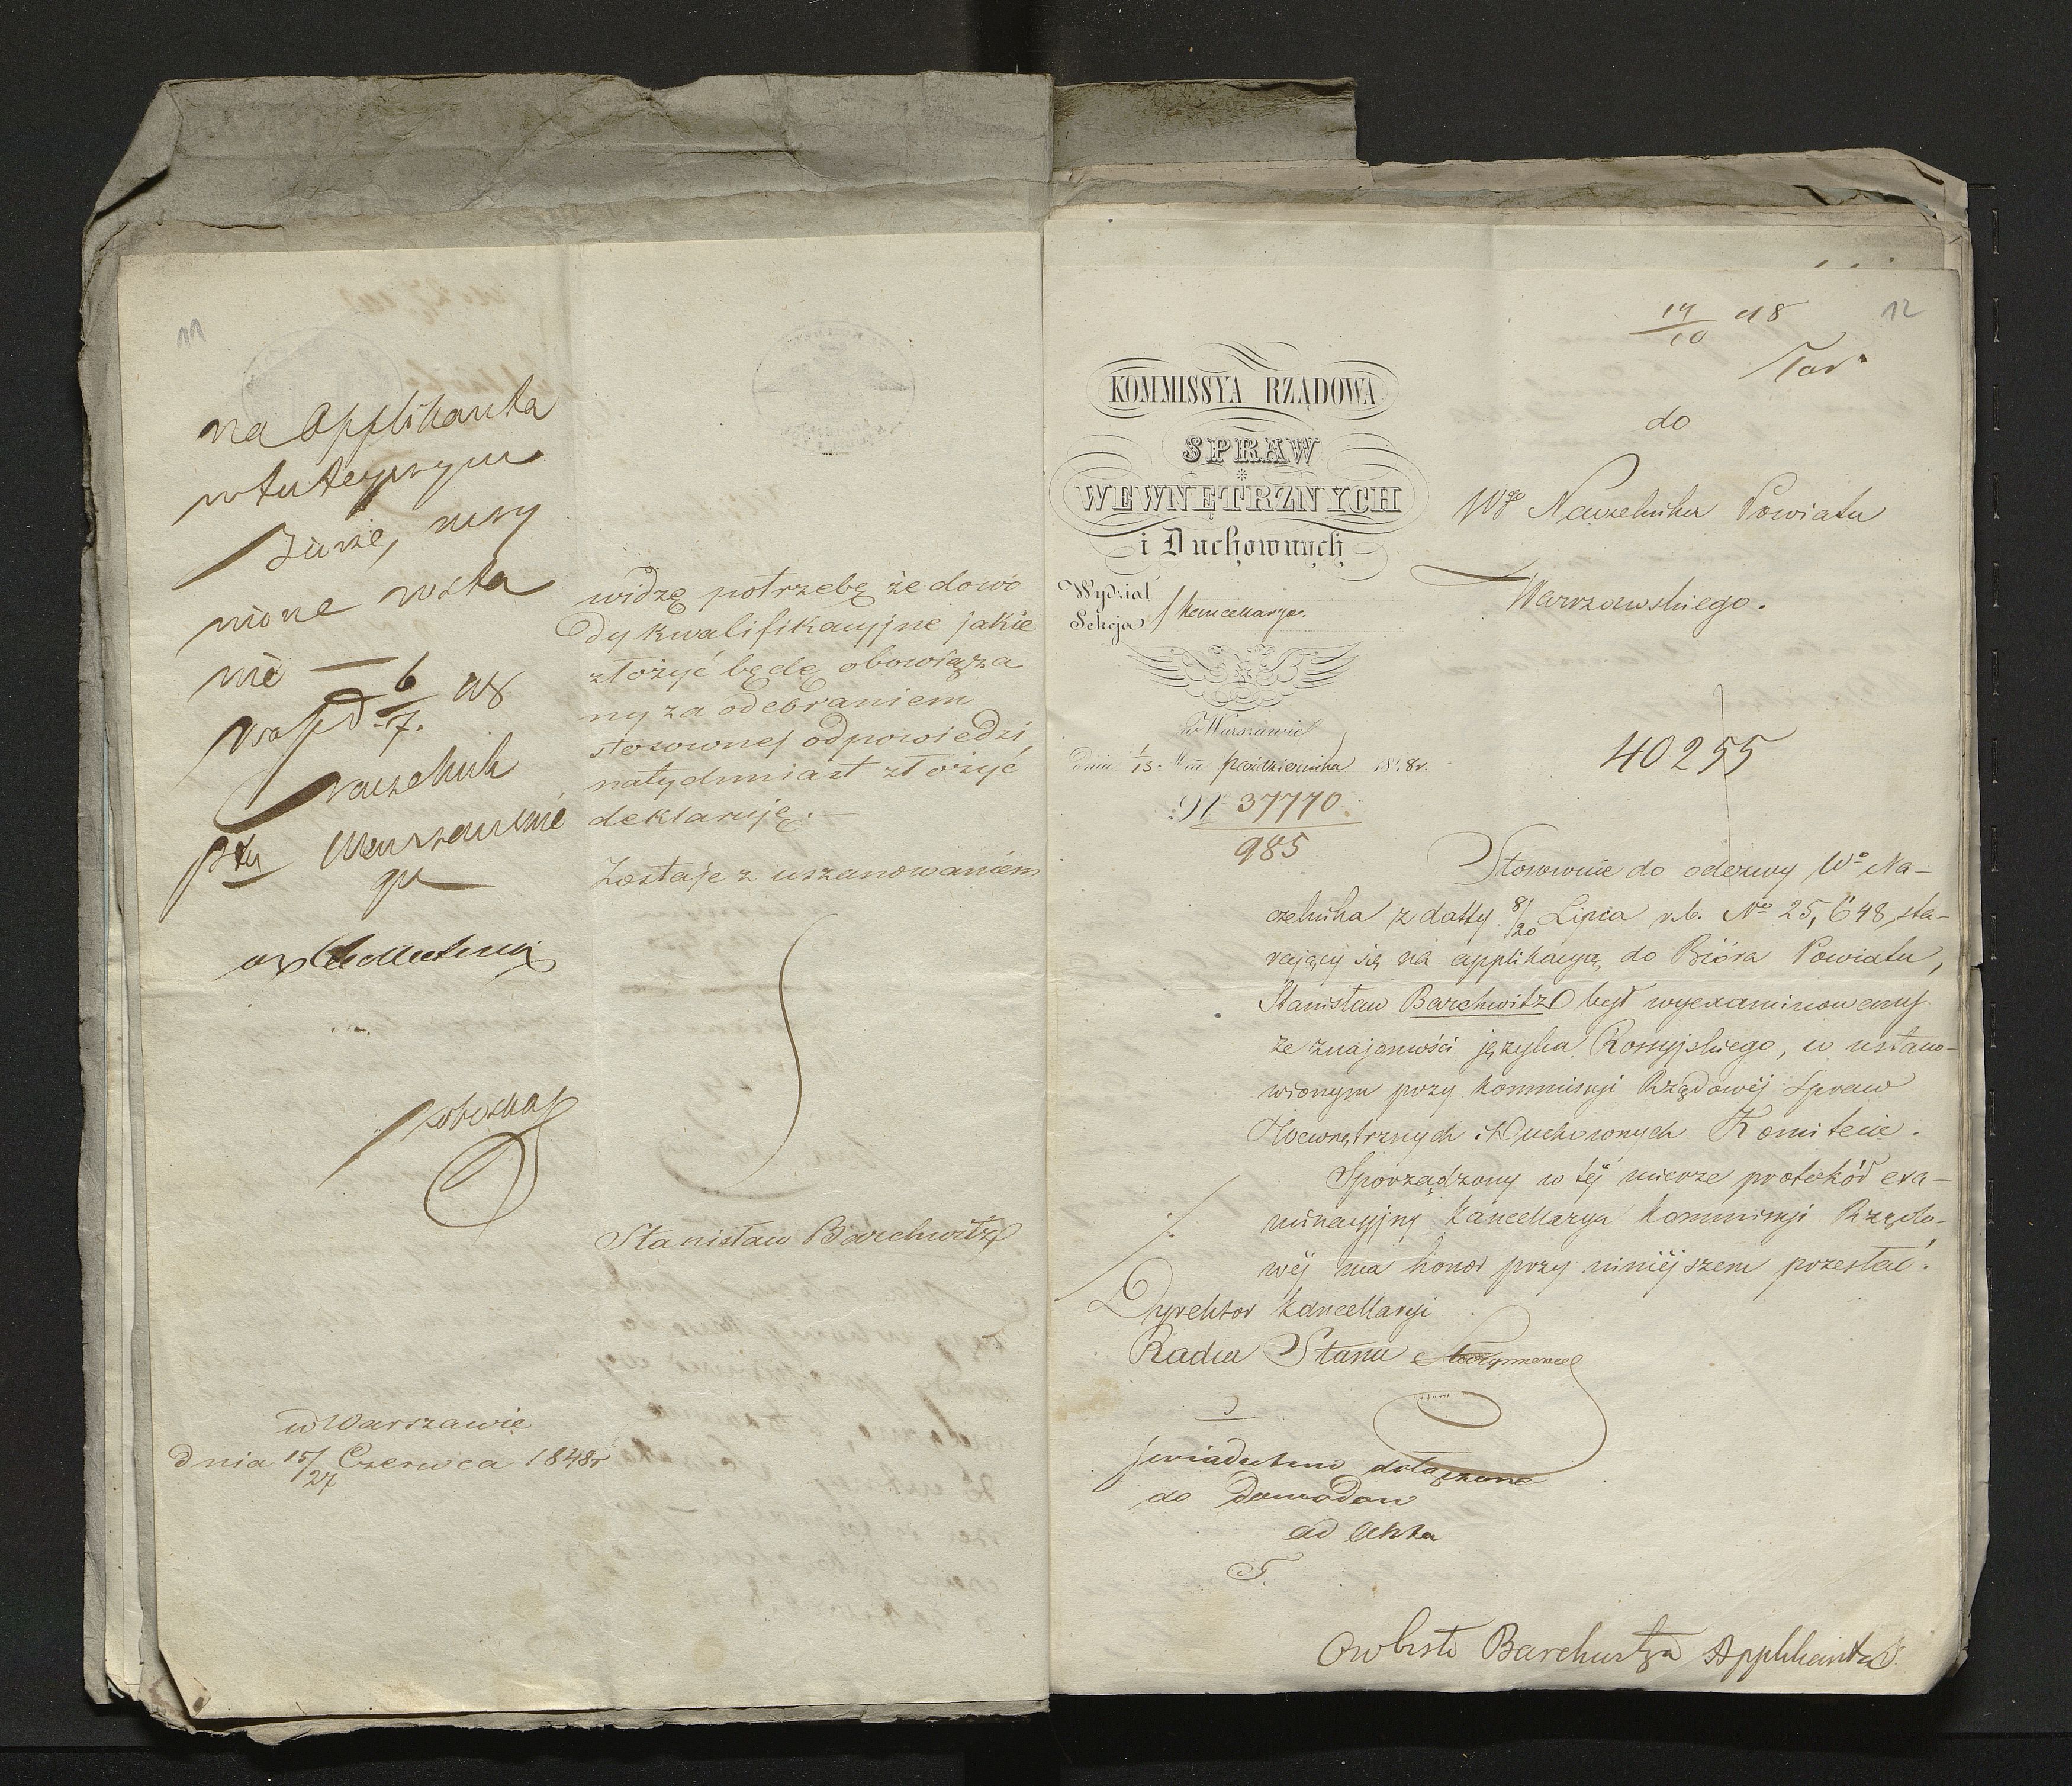 11
na Applikanta
w tuteyszym
Biurze, uczy
nione zosta
nie — 6/7. 48
Naczelnik
Ptu Warszawskie
go
widzę potrzebę że dowo
dy kwalifikacyjne jakie
złożyć będę obowiąza
ny za odebraniem
stosownej odpowiedzi
natychmiast złożyć
deklaruję. —
Zostaje z uszanowaniem
Stanisław Barchwitz
w Warszawie
dnia 15/27 Czerwca 1848r
12
14/10 48
KOMMISSYA RZĄDOWA
SPRAW
WEWNĘTRZNYCH
i Duchownych
Wydział
Sekcja
Kancellarya.
w Warszawie
dnia 1/13. Mca Października 1848r.
No 37770.
985
do
Wgo Naczelnika Powiatu
Warszawskiego.
40255
Stosownie do odezwy Wo Na-
czelnika z datty 8/20 Lipca r.b. No 25,648, sta-
rający się na applikacyę do Bióra Powiatu,
Stanisław Barchwitz był wyexaminowany
ze znajomości języka Rossyjskiego, w ustano-
wionym przy Kommissyi Rządowéj Spraw
Wewnętrznych i Duchownych Komitecie.
Sporządzony w téj mierze protokół exa-
minacyjny Kancellarya Kommissyi Rządo-
wéj ma honor przy niniéjszem przesłać.
Dyrektor Kancellaryi
Radca Stanu
Świadectwo dołączone
do dowodów
ad Akta
T.
Osobiste Barchwitza Applikanta